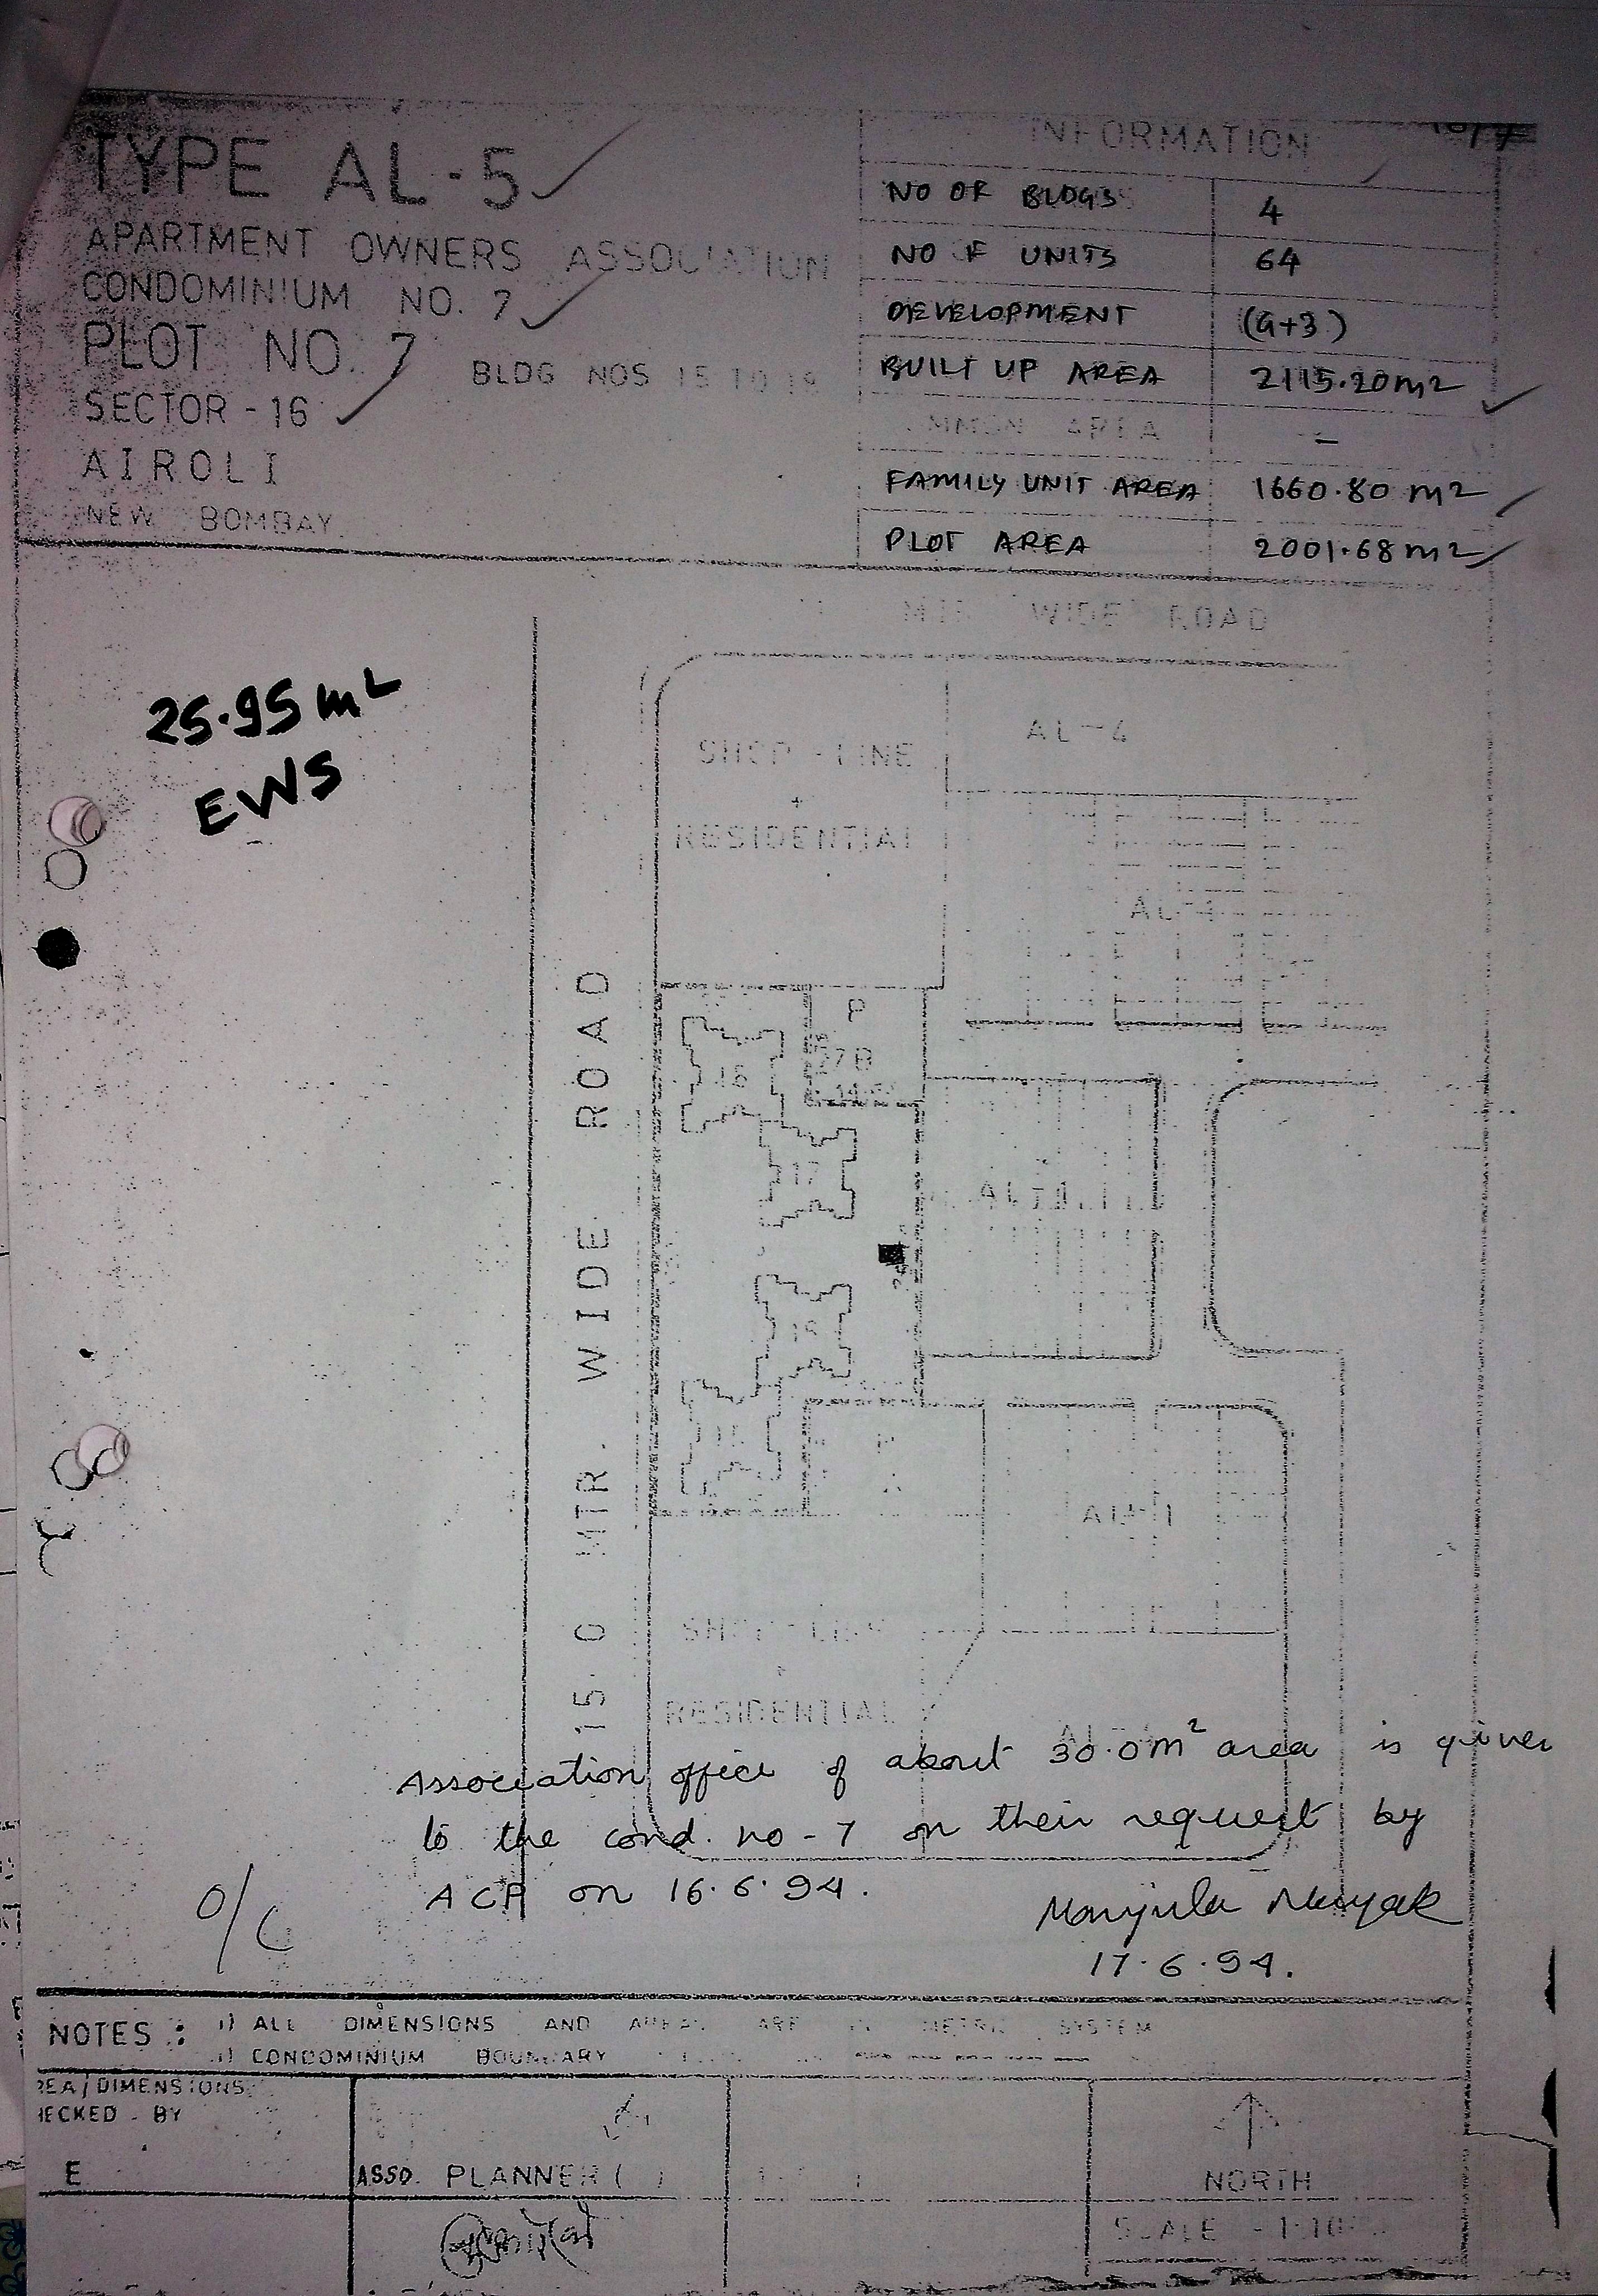 TYPE AL-5
APARTMENT OWNERS ASSOCIATION
CONDOMINIUM NO. 7
PLOT NO. 7 BLDG NOS 15 TO
SECTOR - 16
AIROLI
NEW BOMBAY
INFORMATION
NO OF BLDGS 4
NO OF UNITS 64
DEVELOPMENT (G+3)
BUILT UP AREA 2115.20 m2
COMMON AREA -
FAMILY UNIT AREA 1660.80 m2
PLOT AREA 2001.68 m2
MTR WIDE ROAD
25.95 m2
EWS
SHOP - LINE
+
RESIDENTIAL
AL-4
P
7B
17
15.0 MTR. WIDE ROAD
RESIDENTIAL
Association office of about 30.0 m2 area is given
to the cond. no - 7 on their request by
ACP on 16.6.94.
O/C
Manjula Nayak
17.6.94.
NOTES : i) ALL DIMENSIONS AND AREAS ARE IN METRIC SYSTEM
ii) CONDOMINIUM BOUNDARY
AREA/DIMENSIONS
CHECKED - BY
E
ASSO. PLANNER ( )
NORTH
SCALE -